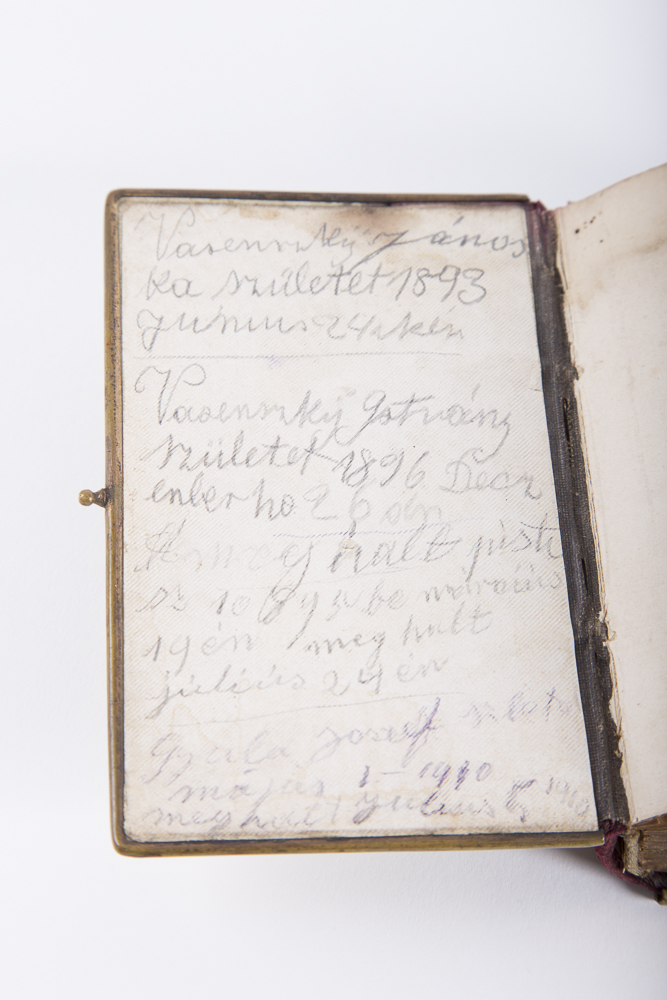 Vasenszky János
ka született 1893
Június 24ikén
Vasenszky Istvány
született 1896 Decz
enber ho 26 án
A meg halt pisti
sz 1895 be március
19 én meg halt
július 24 én
Gyula József szlet
május 1 - 1910
meghalt Július 5 1910